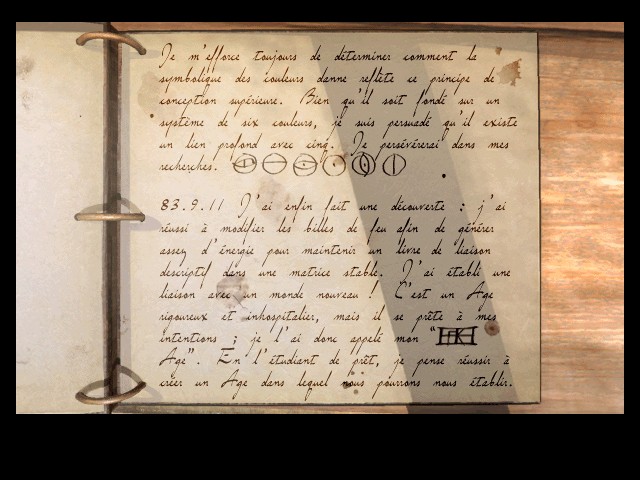 Je m'efforce toujours de déterminer comment le
symbolique des couleurs danne reflète ce principe de
conception supérieure. Bien qu'il soit fondé sur un
système de six couleurs, je suis persuadé qu'il existe
un lien profond avec cinq. Je persévérerai dans mes
recherches.
83.9.11 J'ai enfin fait une découverte : j'ai
réussi à modifier les billes de feu afin de générer
assez d'énergie pour maintenir un livre de liaison
descriptif dans une matrice stable. J'ai établi une
liaison avec un monde nouveau ! C'est un Age
rigoureux et inhospitalier, mais il se prête à mes
intentions ; je l'ai donc appelé mon "
Age". En l'étudiant de prêt, je pense réussir à
créer un Age dans lequel nous pourrons nous établir.